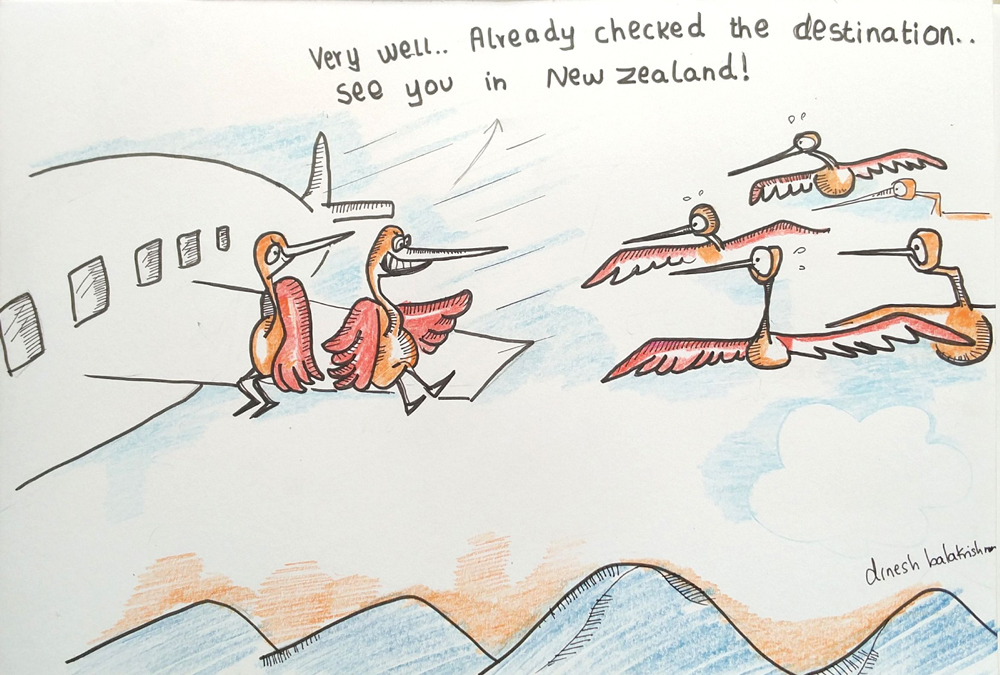 Very well.. Already checked the destination..
see you in New Zealand!
dinesh balakrishnan